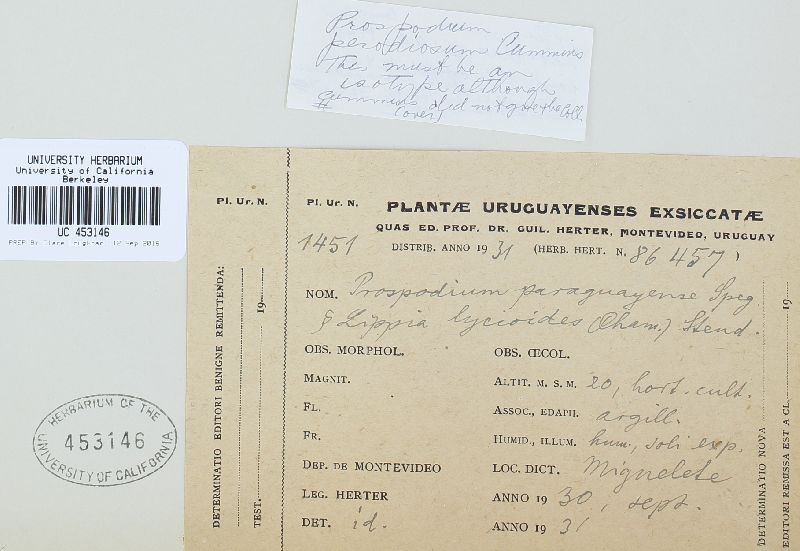 Prospodium
perodiosum Cummins
This must be an
isotype although
Cummins did not give the Coll.
# (over)
UNIVERSITY HERBARIUM
University of California
Berkeley
UC 453146
HERBARIUM OF THE
453146
UNIVERSITY OF CALIFORNIA
Pl. Ur. N.
DETERMINATIO EDITORI BENIGNE REMITTENDA:
19
TEST.
Pl. Ur. N.
1451
PLANTÆ URUGUAYENSES EXSICCATÆ
QUAS ED. PROF. DR. GUIL. HERTER, MONTEVIDEO, URUGUAY
DISTRIB. ANNO 1931 (HERB. HERT. N. 86457)
NOM. Prospodium paraguayense Speg.
§ Lippia lycioides (Cham.) Steud.
OBS. MORPHOL. OBS. ŒCOL.
MAGNIT. ALTIT. M. S. M. 20, hort. cult.
FL. ASSOC., EDAPH. argill.
FR. HUMID., ILLUM. hum., soli exp.
DEP. DE MONTEVIDEO LOC. DICT. Miguelete
LEG. HERTER ANNO 1930, sept.
DET. id. ANNO 1931
DETERMINATIO NOVA
EDITORI REMISSA EST A CL.
19